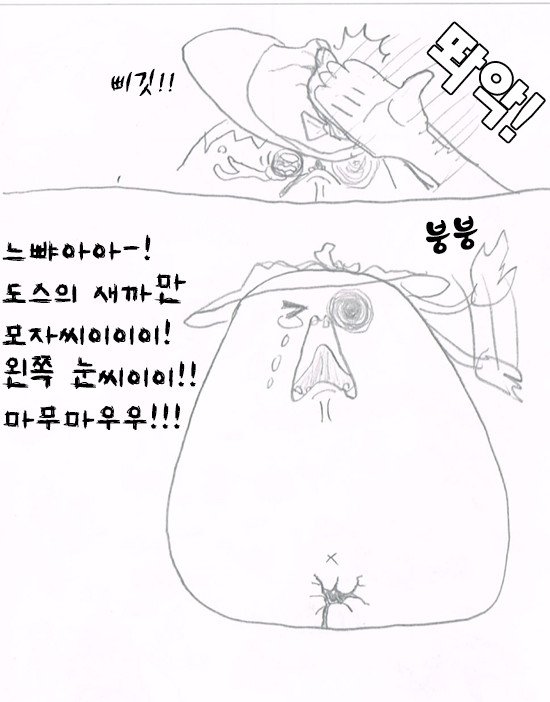 삐깃!!
쫘악!
붕붕
느뺘아아ㅡ!
도스의 새까만
모자씨이이이!
왼쪽 눈씨이이!!
마무마우우!!!